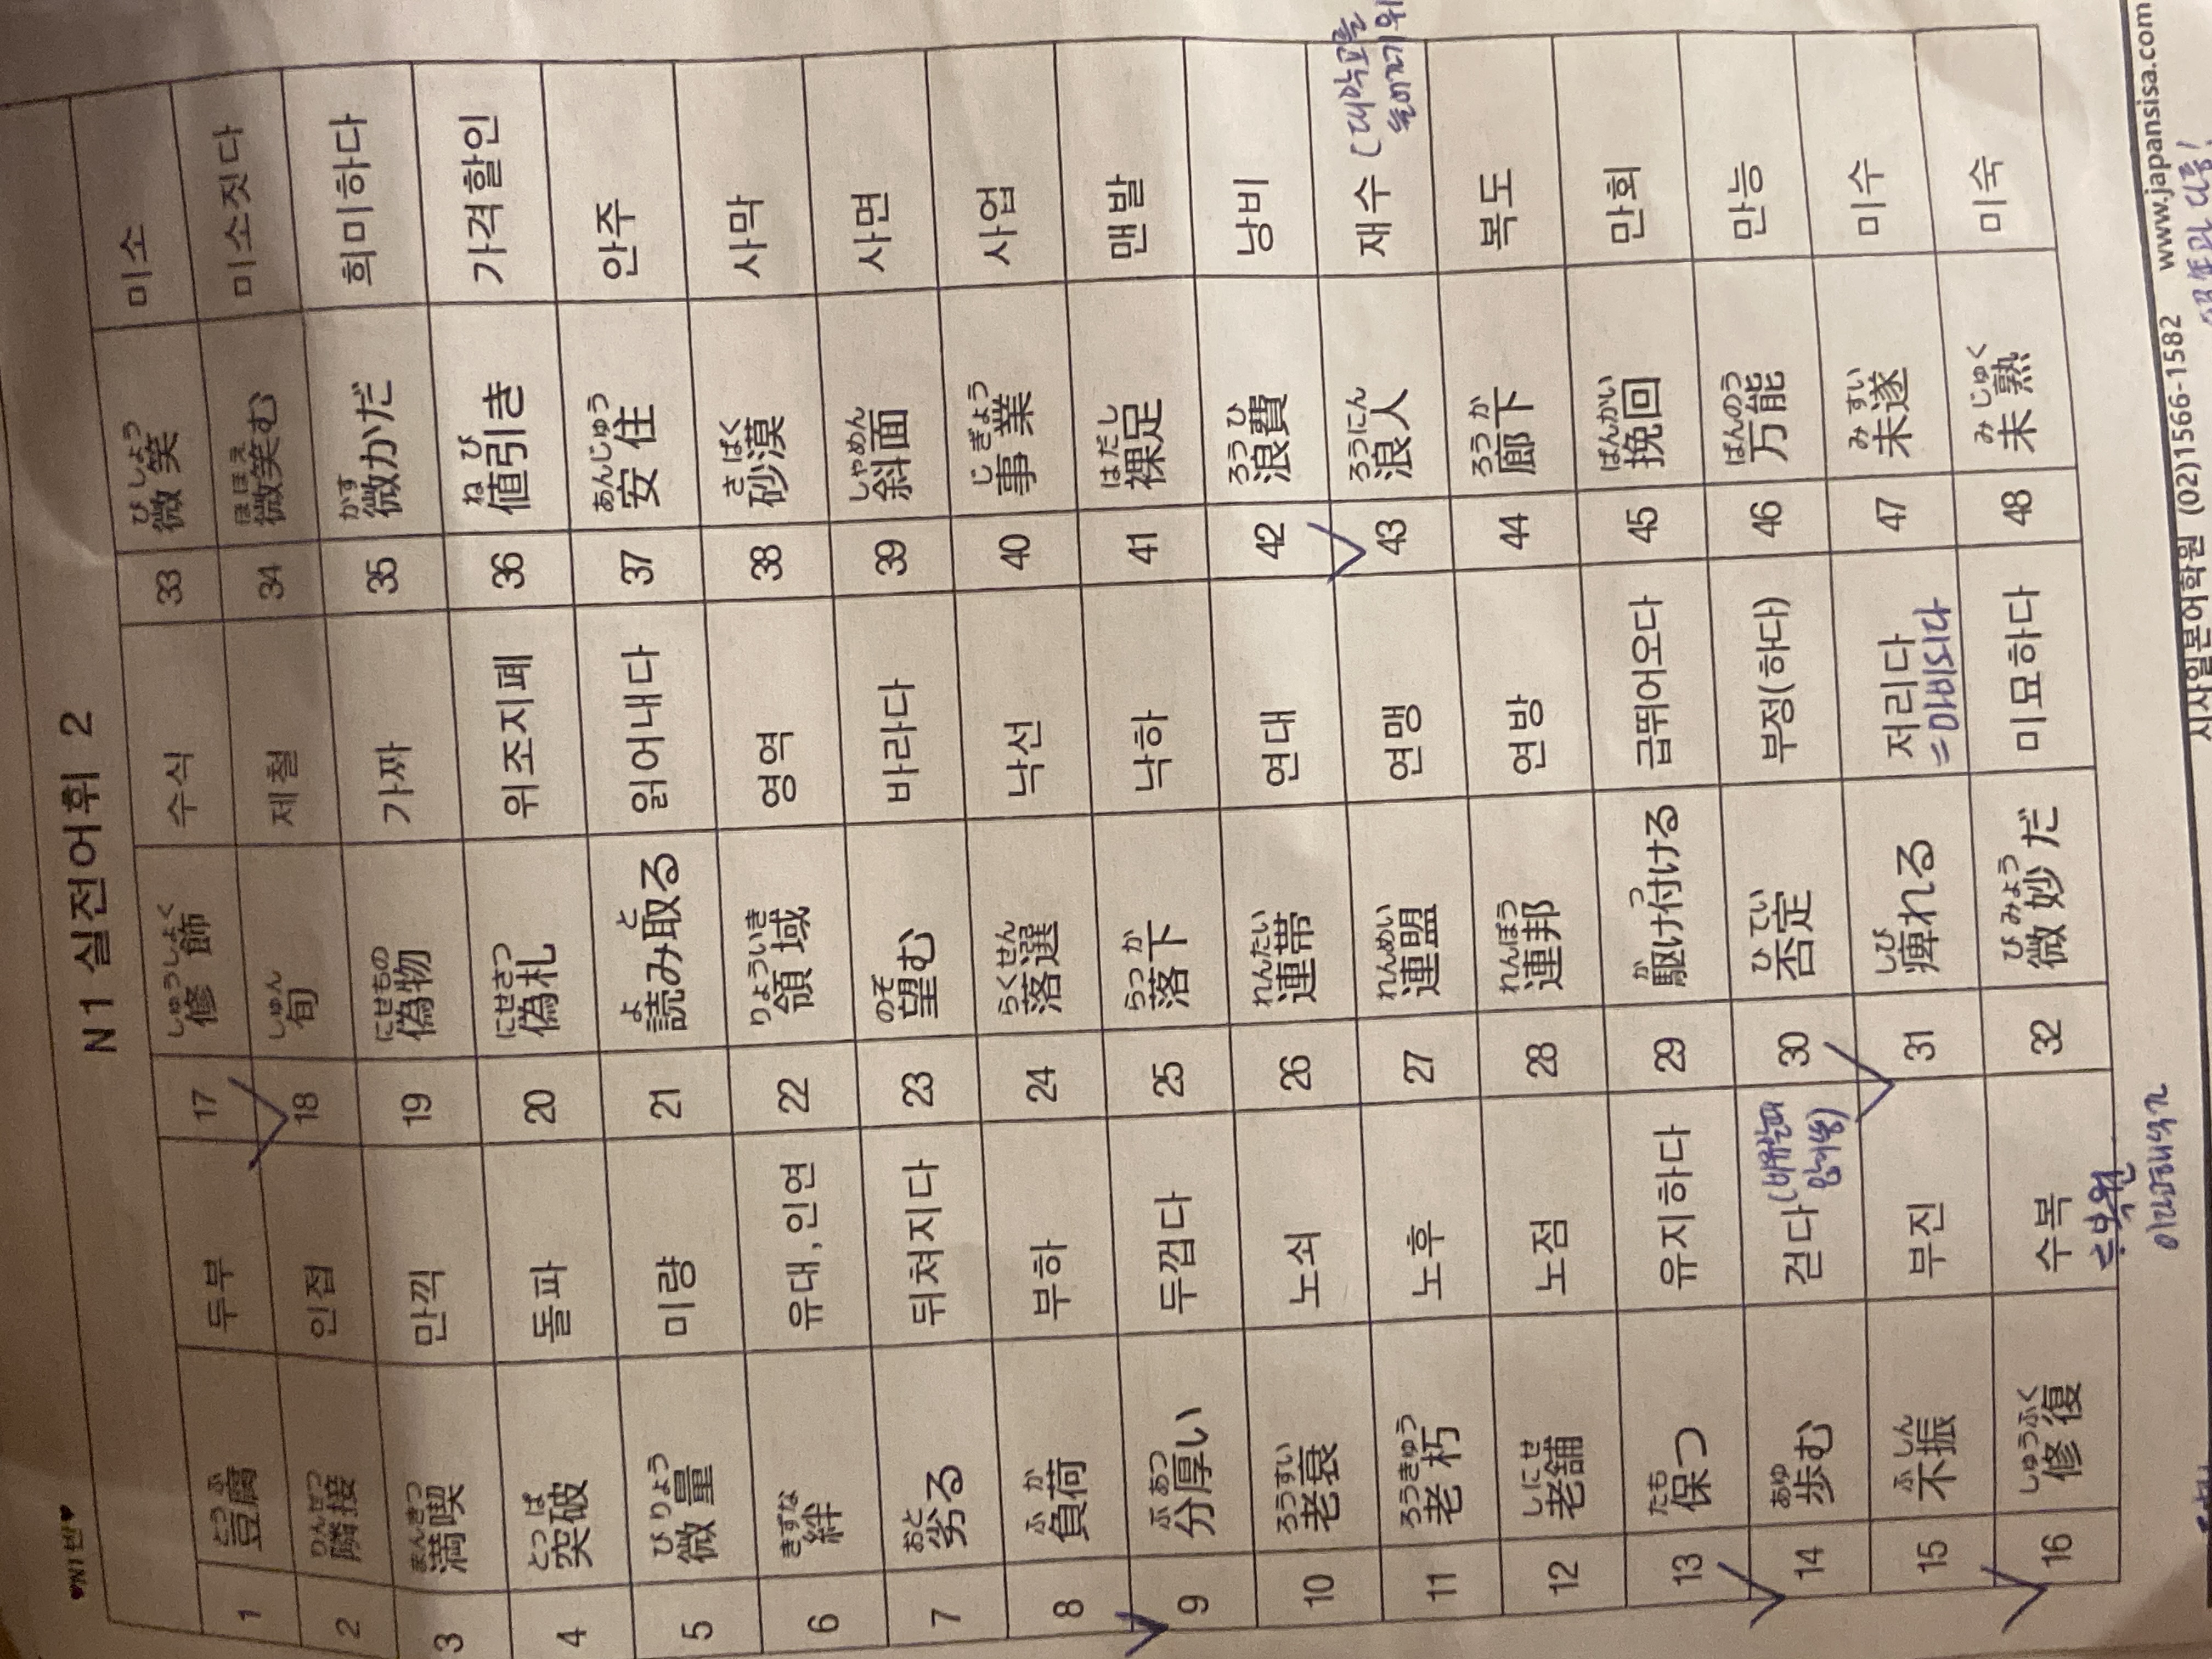 ♥N1반♥
N1 실전어휘 2
1 豆腐 とうふ 두부 17 修飾 しゅうしょく 수식 33 微笑 びしょう 미소
2 隣接 りんせつ 인접 18 旬 しゅん 제철 34 微笑む ほほえ 미소짓다
3 満喫 まんきつ 만끽 19 偽物 にせもの 가짜 35 微かだ かす 희미하다
4 突破 とっぱ 돌파 20 偽札 にせさつ 위조지폐 36 値引き ねび 가격할인
5 微量 びりょう 미량 21 読み取る よ と 읽어내다 37 安住 あんじゅう 안주
6 絆 きずな 유대,인연 22 領域 りょういき 영역 38 砂漠 さばく 사막
7 劣る おと 뒤쳐지다 23 望む のぞ 바라다 39 斜面 しゃめん 사면
8 負荷 ふか 부하 24 落選 らくせん 낙선 40 事業 じぎょう 사업
9 分厚い ぶあつ 두껍다 25 落下 らっか 낙하 41 裸足 はだし 맨발
10 老衰 ろうすい 노쇠 26 連帯 れんたい 연대 42 浪費 ろうひ 낭비
11 老朽 ろうきゅう 노후 27 連盟 れんめい 연맹 43 浪人 ろうにん 재수 (대학교를
12 老舗 しにせ 노점 28 連邦 れんぽう 연방 44 廊下 ろうか 복도
13 保つ たも 유지하다 29 駆け付ける か つ 급뛰어오다 45 挽回 ばんかい 만회
14 歩む あゆ 걷다 (비유할때 30 否定 ひてい 부정(하다) 46 万能 ばんのう 만능
15 不振 ふしん 부진 31 痺れる しび 저리다 47 未遂 みすい 미수
=마비되다
16 修復 しゅうふく 수복 32 微妙だ びみょう 미묘하다 48 未熟 みじゅく 미숙
시사일본어학원 (02)1566-1582 www.japansisa.com